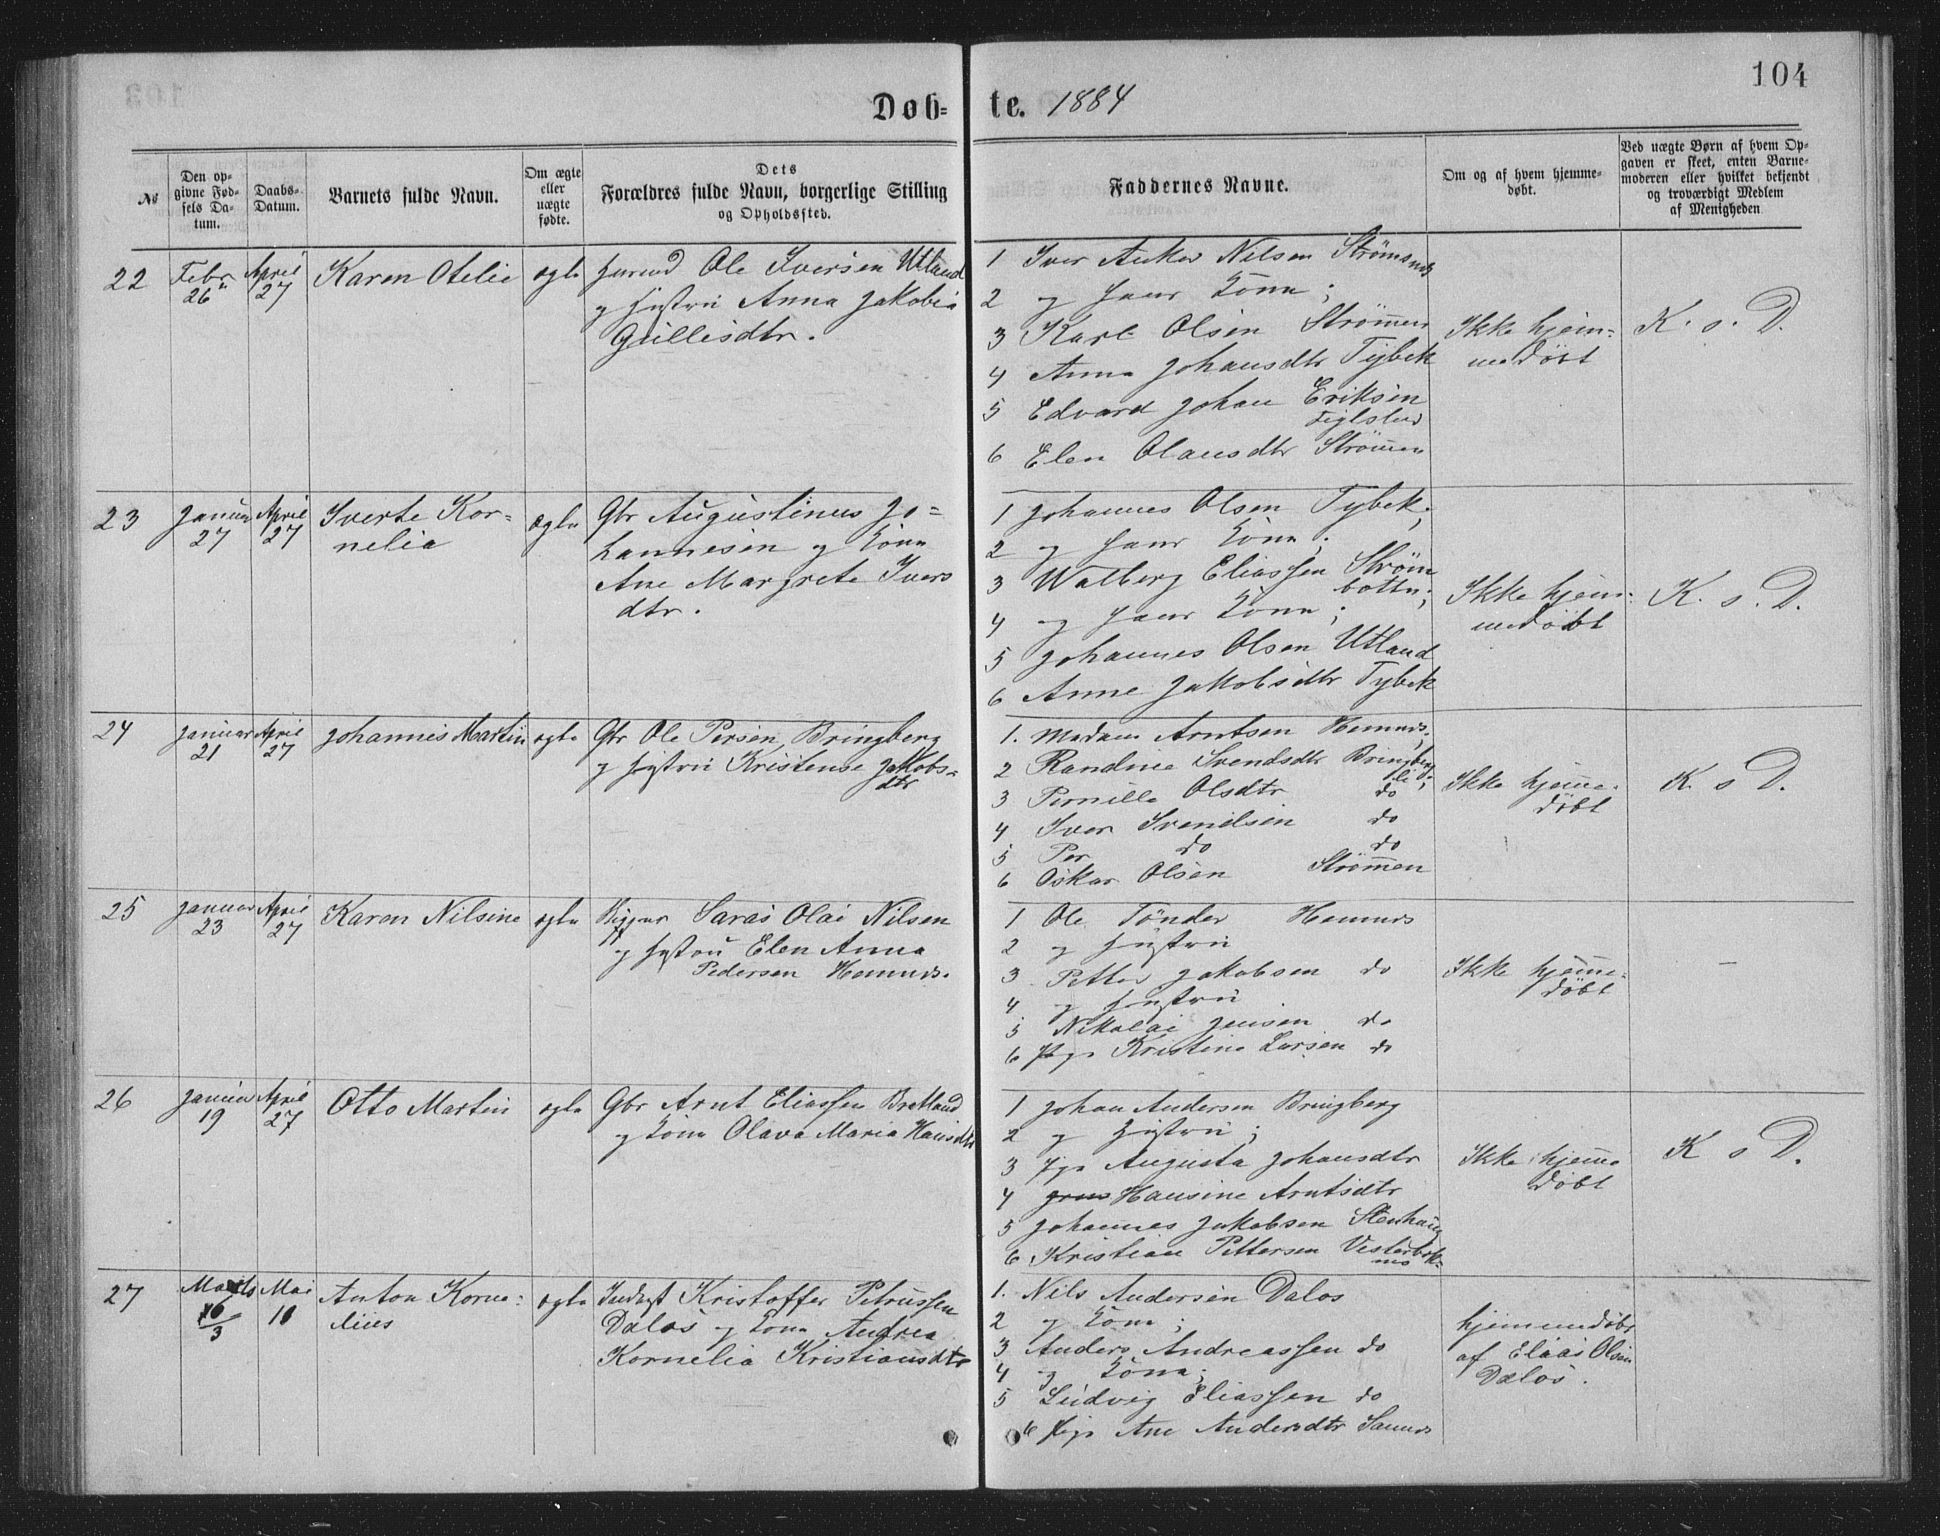 104
Døb-
te. 1884
No
Den op-
givne Fød-
sels Da-
tum.
Daabs-
Datum.
Barnets fulde Navn.
Om ægte
eller
uægte
fødte.
Dets
Forældres fulde Navn, borgerlige Stilling
og Opholdssted.
Faddernes Navne.
Om og af hvem hjemme-
døbt.
Ved uægte Børn af hvem Op-
gaven er skeet, enten Barne-
moderen eller hvilket bekjendt
og troværdigt Medlem
af Menigheden
22
Febr
26
April
27
Karen Otelie
ægte
Ole Iversen Utland
og Hustru Anna Jakobia
Gullesdtr.
1 Iver Anker Nilsen
2 og Hans Kona;
3 Karl Olsen Strømen
4 Anna Johansdtr Tybek
5 Edvard Johan Eriksen
6 Elen Olausdtr Strømen
Ikke hjem-
medøbt
K. s. D.
23
Januar
27
April
27
Iverte Kor-
nelia
ægte
Gbr Augustinus Jo-
hannesen og Kona
Ane Margrete Ivers
dtr.
1 Johannes Olsen Tybek;
2 og Hans Kona;
3 Walberg Eliassen Strøm
botn;
4 og Hans Kona;
5 Johannes Olsen Utland
6 Anne Jakobsdtr Tybek
Ikke hjem-
medøbt
K. s. D.
24
Januar
21
April
27
Johannes Martin
ægte
Gbr Ole Persen Bringberg
og Hustru Kristense Jakobs-
dtr
1. Madam Arntsen Hemnes;
2 Randine Svendsdtr Bringberg
li;
3 Pernille Olsdtr do
4 Iver Svendsen do
5 Per do do
6 Oskar Olsen Strømmen
Ikke hjeme-
døbt
K. s D.
25
Januar
23
April
27
Karen Nilsine
ægte
Saras Olai Nilsen
og Hustru Elen Anna
Pedersen Hemnes.
1 Ole Tønder Hemnes
2 og Hustru
3 Petter Jakobsen do
4 og Hustru
5 Nikolai Jensen do
6 Pige Kristine Larsen do
Ikke hjeme-
døbt
–
26
Januar
19
April
27
Otto Martin
ægte
Gbr Arnt Eliassen Bratland
og Kona Olava Maria Hansdtr
1 Johan Andersen Bringberg
2 og Hustru;
3 Pige Augusta Johansdtr
4 Hansine Arntsdtr
5 Johannes Jakobsen Stenhaug
6 Kristian Pettersen
Ikke hjeme
døbt
K s D.
27
Marts
16/3
Mai
18
Anton Korne-
lius
ægte
Inderst Kristoffer Petrussen
Dalos og Kona Andrea
Kornelia Kristiansdtr
1. Nils Andersen Dalos
2 og Kona;
3 Anders Andreassen do
4 og Kona;
5 Ludvig Eliassen do
6 Pige Ane Andersdtr
hjemmedøbt
af Elias Olsen
Dalos.